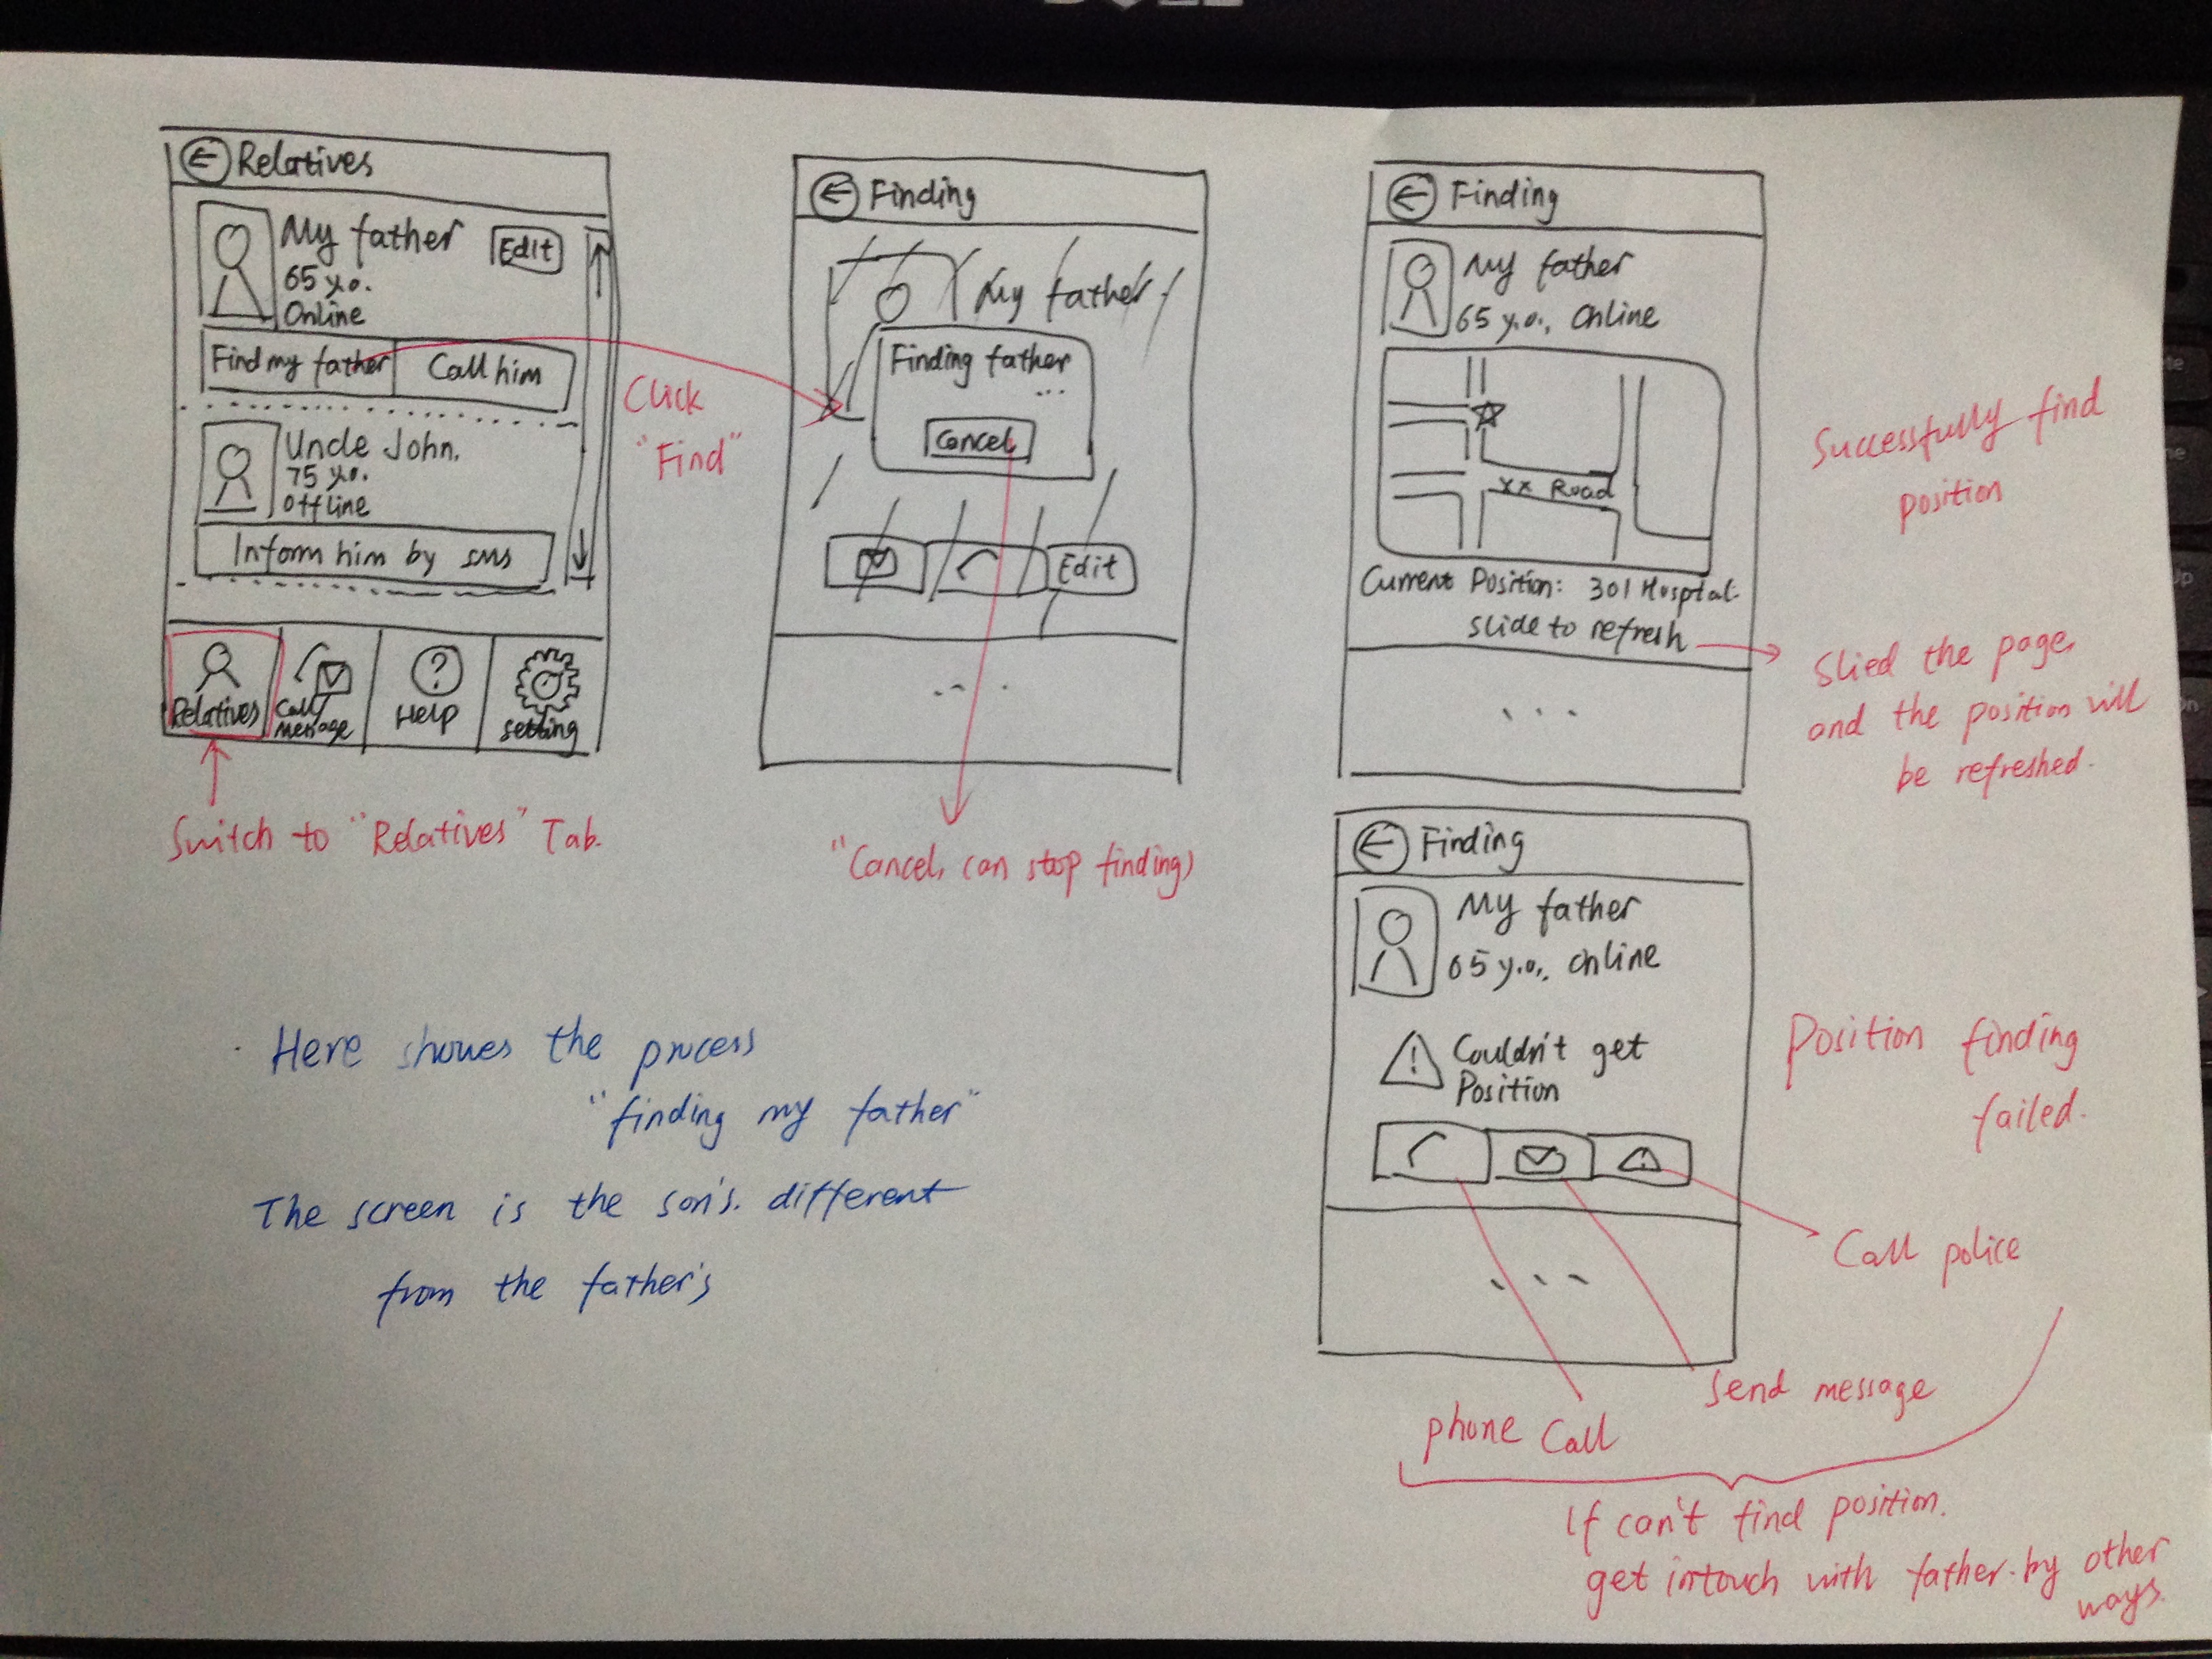 Relatives
My father
Edit
65 y.o.
Online
Find my father
Call him
Uncle John.
75 y.o.
Offline
Inform him by SMS
Relatives
Call/
Message
Help
Setting
Switch to "Relatives" Tab.
Click
"Find"
Finding
My father
Finding father
...
Cancel
Edit
...
"Cancel, can stop finding)
Finding
My father
65 y.o., Online
xx Road
Current Position: 301 Hosptal.
Slide to refresh
...
Successfully find
position
Slied the page,
and the position will
be refreshed.
Finding
My father
65 y.o., Online
Couldn't get
Position
...
Position finding
failed.
Call police
Send message
phone Call
If can't find position.
get intouch with father by other
ways.
Here showes the process
"finding my father"
The screen is the son's. different
from the father's